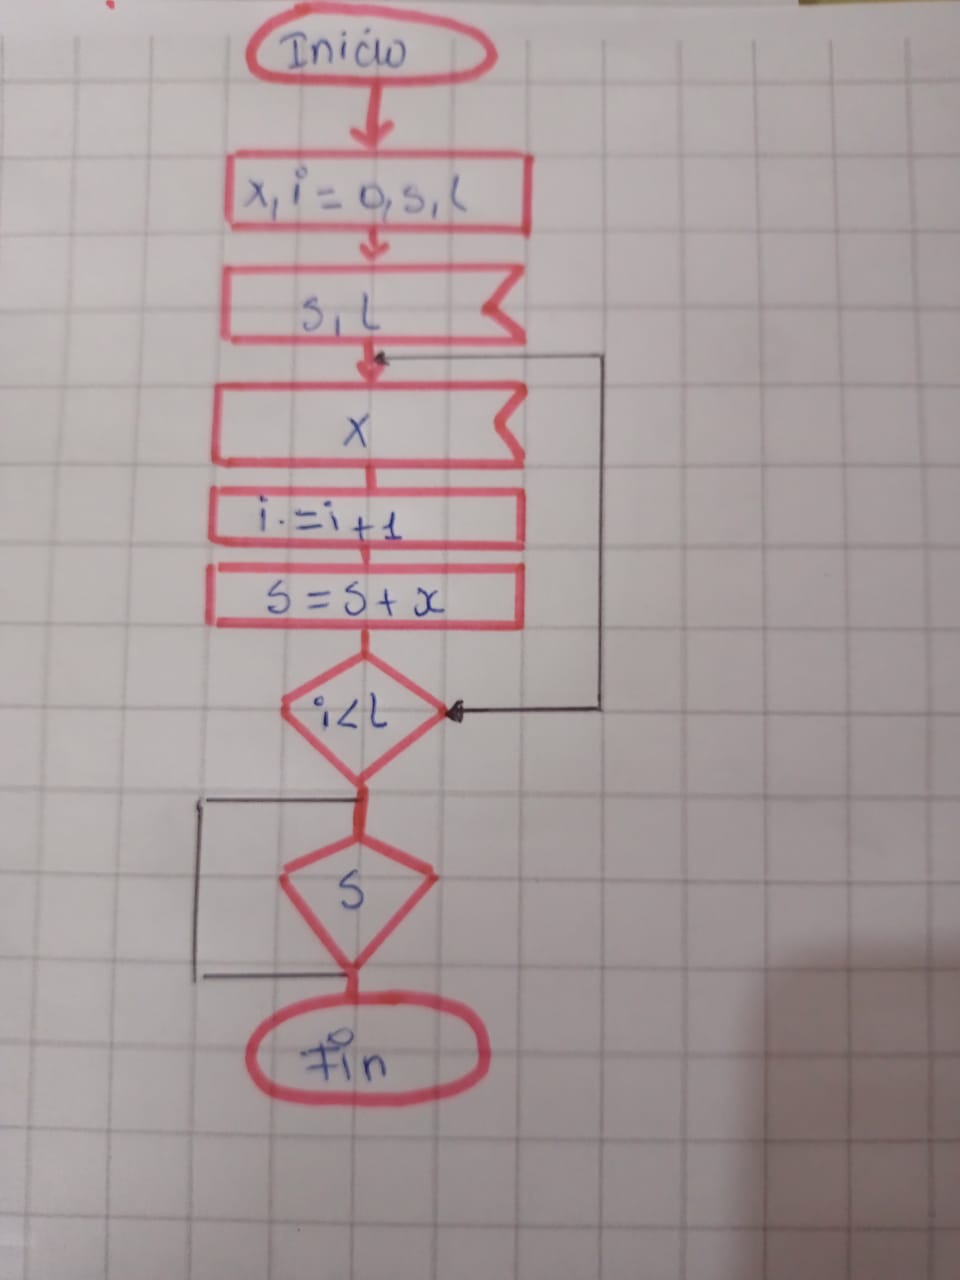 Inicio
x, i = 0, s, l
s, l
x
i.=i+1
s = s + x
i<l
s
Fin